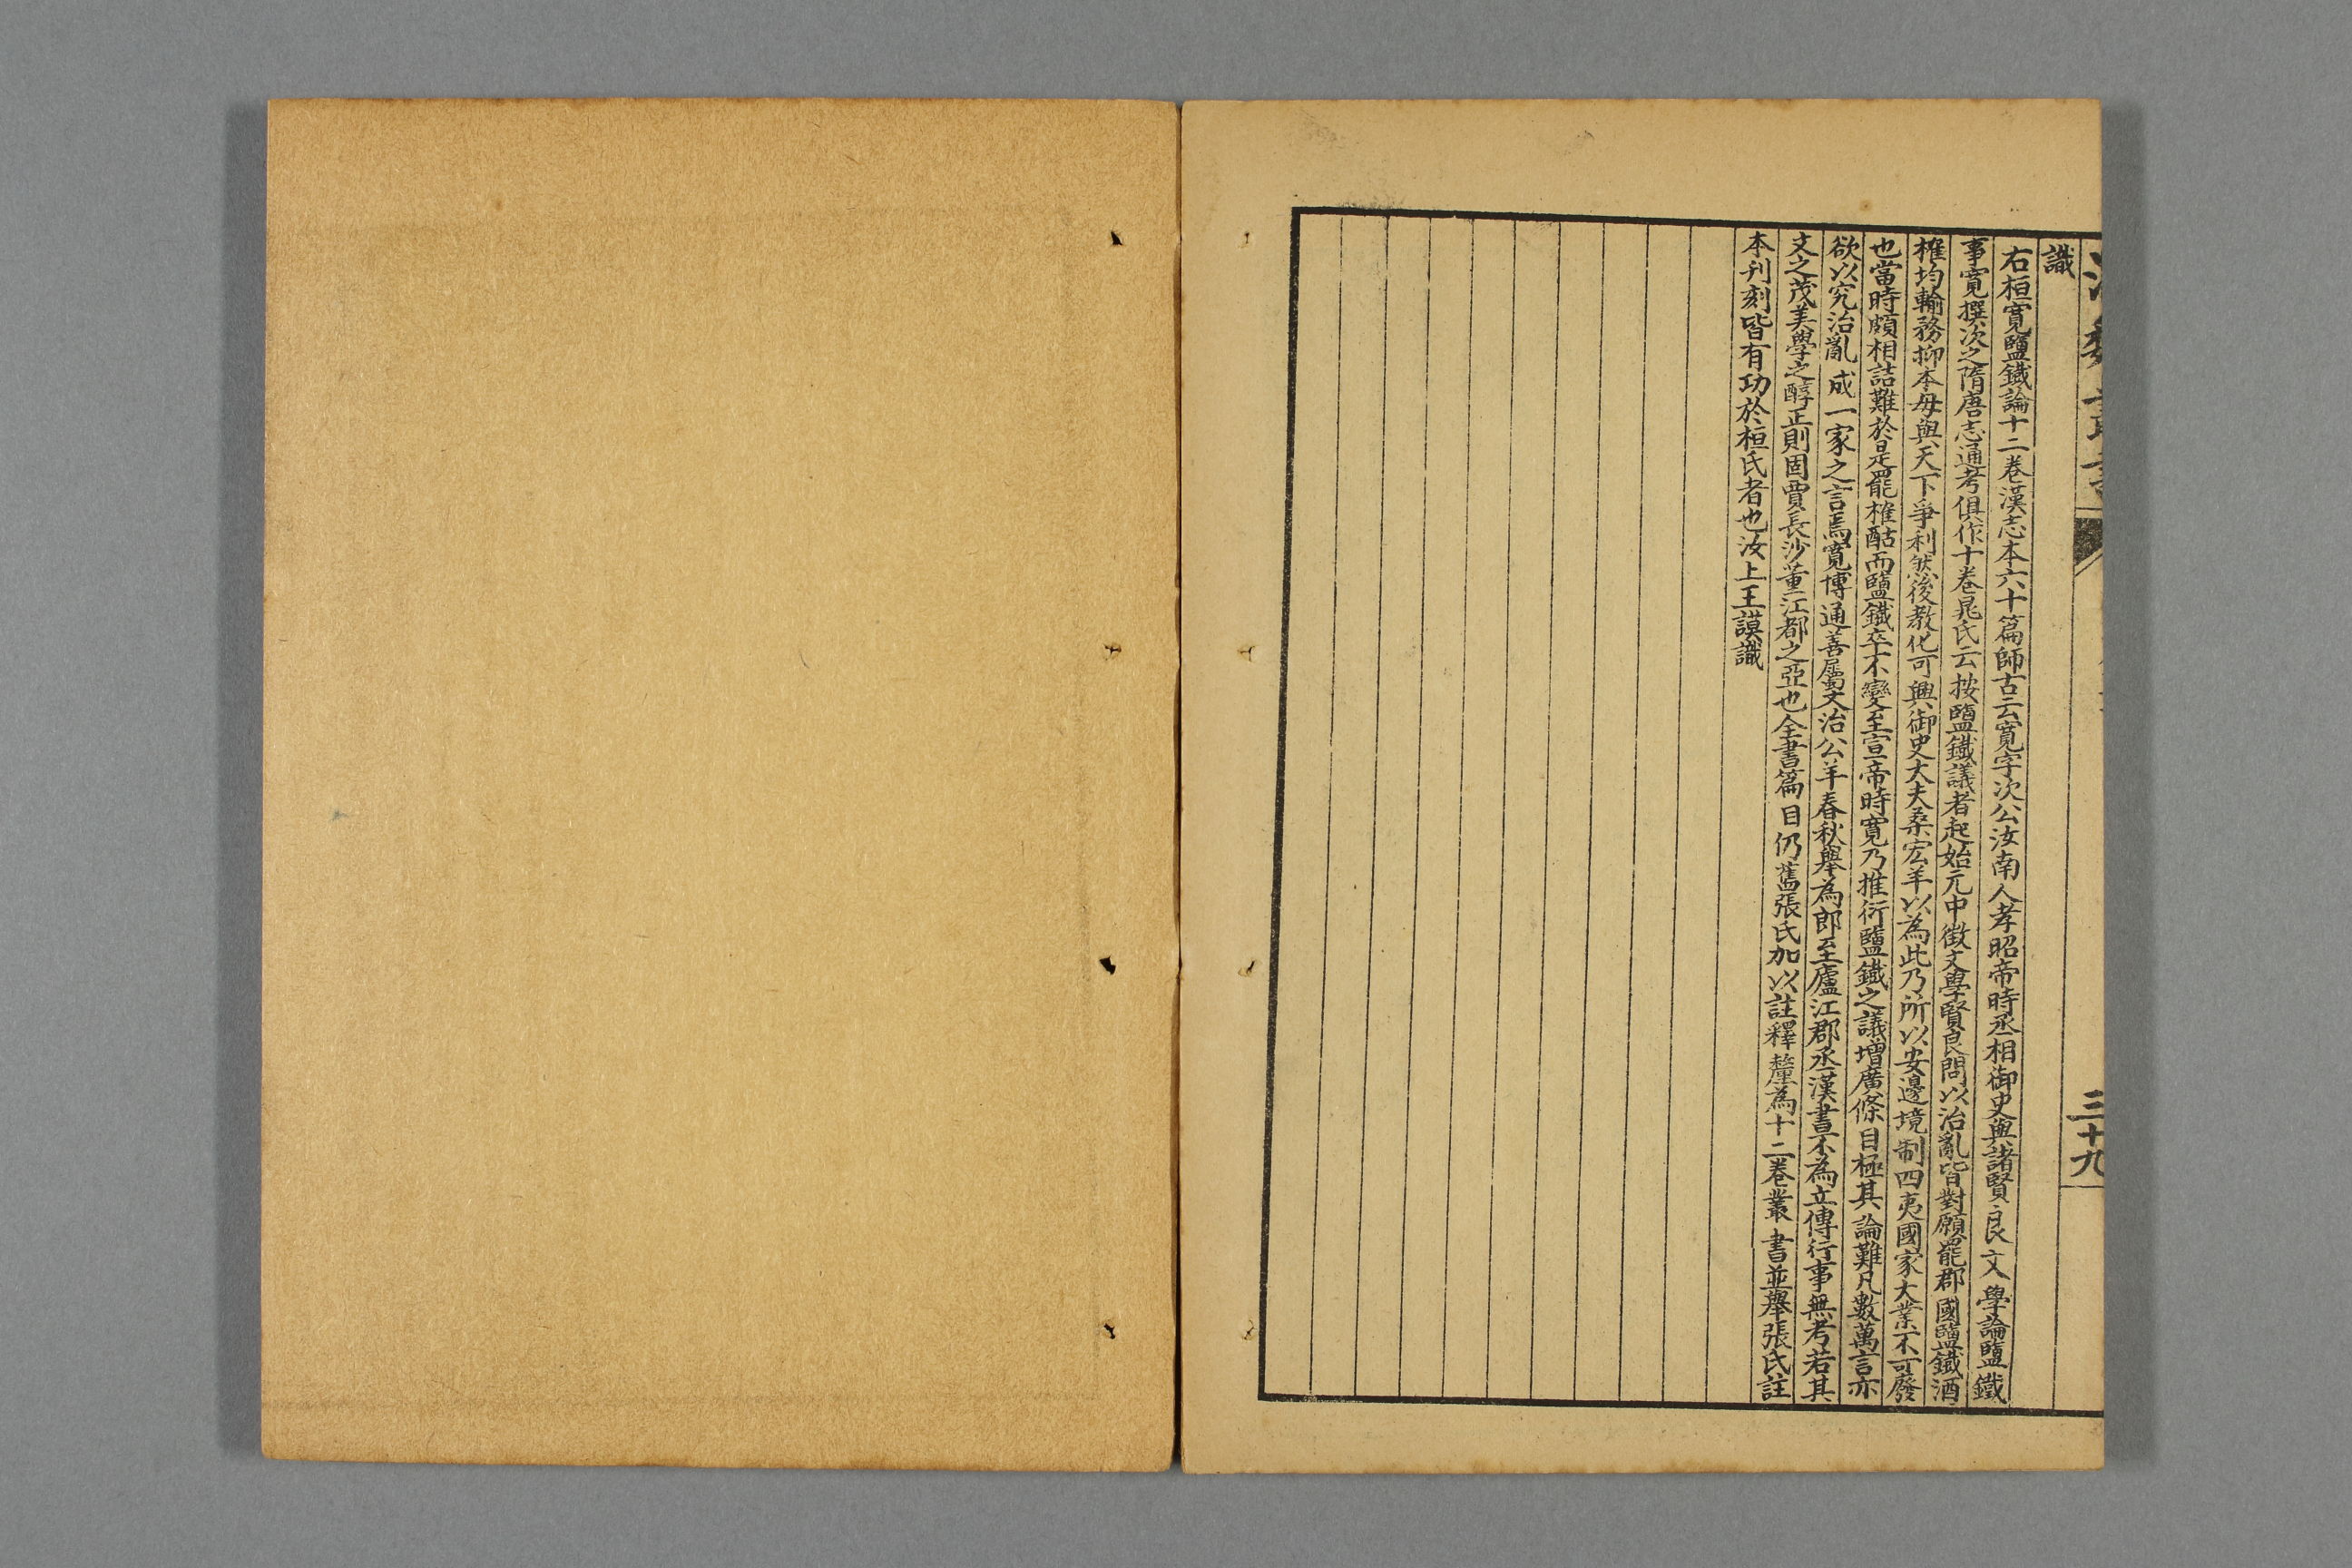 三十九
識
右桓寬鹽鐵論十二卷漢志本六十篇師古云寬字次公汝南人孝昭帝時丞相御史與諸賢良文學論鹽鐵
事寬撰次之隋唐志通考俱作十卷晁氏云按鹽鐵議者起始元中徵文學賢良問以治亂皆對願罷郡國鹽鐵酒
榷均輸務抑本毋與天下爭利然後教化可興御史大夫桑宏羊以為此乃所以安邊境制四夷國家大業不可廢
也當時頗相詰難於是罷榷酤而鹽鐵卒不變至宣帝時寬乃推衍鹽鐵之議增廣條目極其論難凡數萬言亦
欲以究治亂成一家之言焉寬博通善屬文治公羊春秋舉為郎至廬江郡丞漢書不為立傳行事無考若其
文之茂美學之醇正則固賈長沙董江都之亞也全書篇目仍舊張氏加以註釋釐為十二卷叢書並舉張氏註
本刋刻皆有功於桓氏者也汝上王謨識